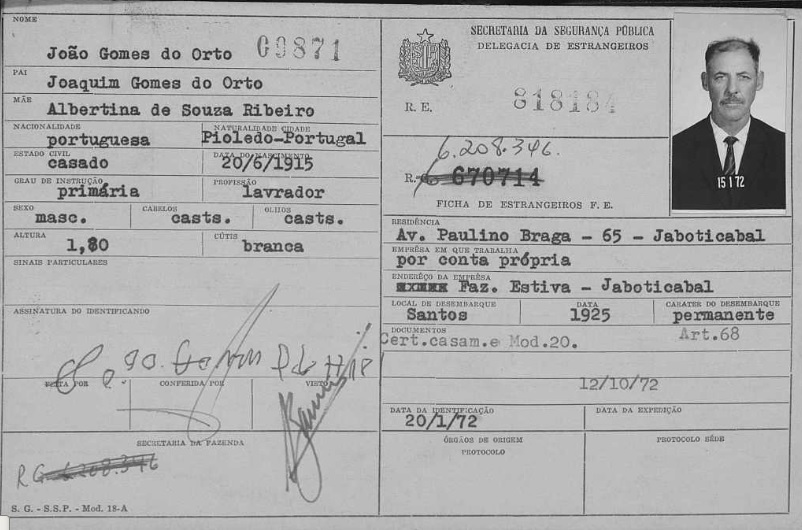 NOME
João Gomes do Orto 09871
PAI
Joaquim Gomes do Orto
MÃE
Albertina de Souza Ribeiro
NACIONALIDADE NATURALIDADE CIDADE
portuguesa Pioledo-Portugal
ESTADO CIVIL DATA DO NASCIMENTO
casado 20/6/1915
GRAU DE INSTRUÇÃO PROFISSÃO
primária lavrador
SEXO CABELOS OLHOS
masc. casts. casts.
ALTURA CÚTIS
1,80 branca
SINAIS PARTICULARES
ASSINATURA DO IDENTIFICANDO
FEITA POR CONFERIDA POR VISTO
SECRETARIA DA FAZENDA
RG 6.208.346
S. G. - S.S.P. - Mod. 18-A
SECRETARIA DA SEGURANÇA PÚBLICA
DELEGACIA DE ESTRANGEIROS
R. E. 818184
6.208.346.
R. 670714
FICHA DE ESTRANGEIROS F. E.
15 1 72
RESIDÊNCIA
Av. Paulino Braga - 65 - Jaboticabal
EMPRÊSA EM QUE TRABALHA
por conta própria
ENDERÊÇO DA EMPRÊSA
Faz. Estiva - Jaboticabal
LOCAL DE DESEMBARQUE DATA CARATER DO DESEMBARQUE
Santos 1925 permanente
DOCUMENTOS
Cert.casam.e Mod.20. Art.68
12/10/72
DATA DA IDENTIFICAÇÃO DATA DA EXPEDIÇÃO
20/1/72
ÓRGÃOS DE ORIGEM PROTOCOLO SÉDE
PROTOCOLO